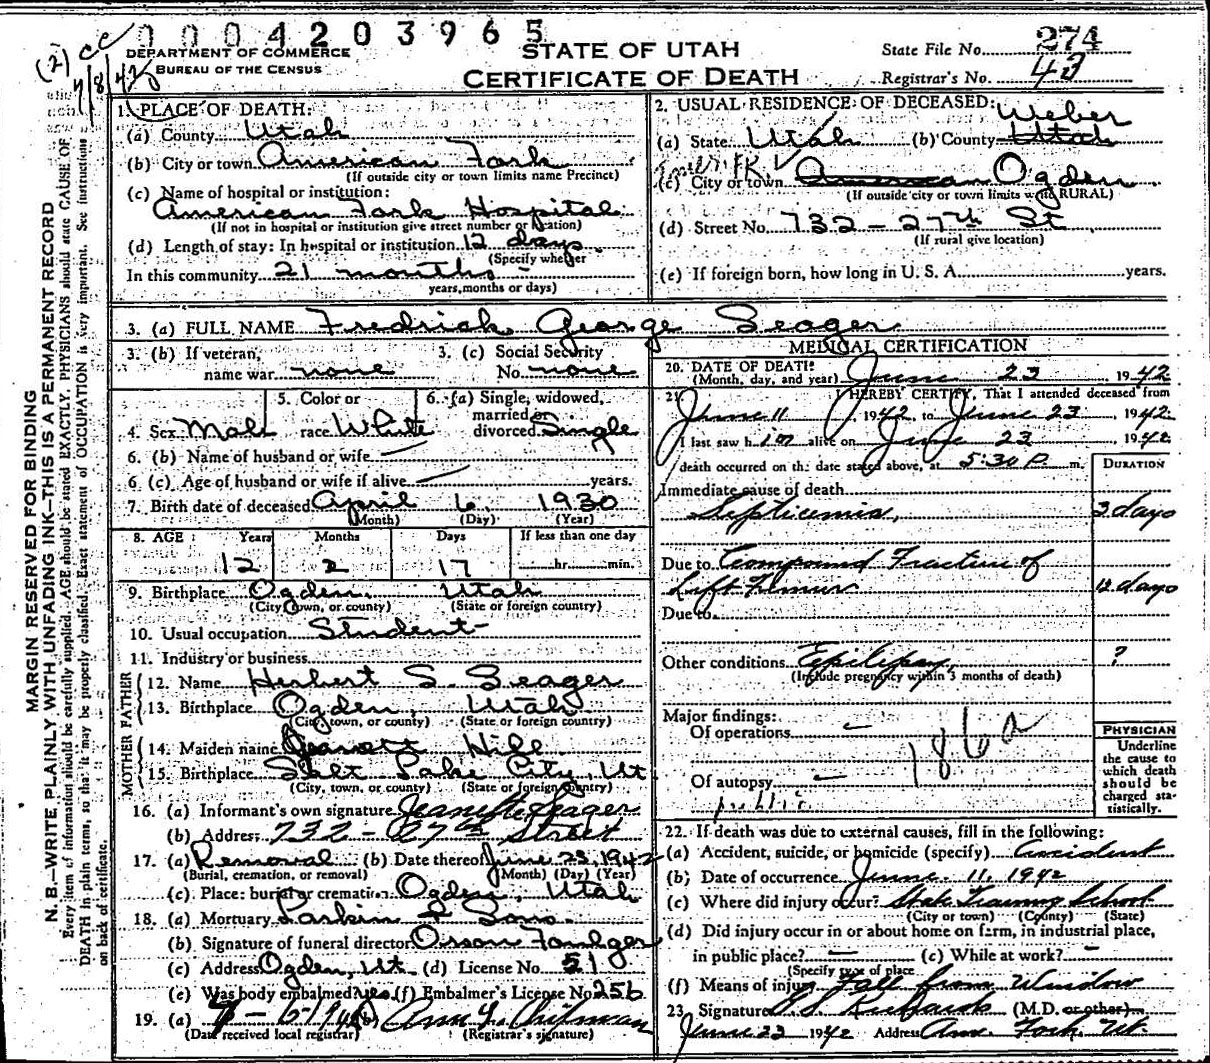 0004203965
(2) cc
7/8/42
DEPARTMENT OF COMMERCE
BUREAU OF THE CENSUS
STATE OF UTAH
CERTIFICATE OF DEATH
State File No. 274
Registrar's No. 43
MARGIN RESERVED FOR BINDING
N. B.—WRITE PLAINLY WITH UNFADING INK—THIS IS A PERMANENT RECORD
Every item of information should be carefully supplied. AGE should be stated EXACTLY. PHYSICIANS should state CAUSE OF
DEATH in plain terms, so that it may be properly classified. Exact statement of OCCUPATION is very important. See instructions
on back of certificate.
1. PLACE OF DEATH:
(a) County Utah
(b) City or town American Fork
(If outside city or town limits name Precinct)
(c) Name of hospital or institution:
American Fork Hospital
(If not in hospital or institution give street number or location)
(d) Length of stay: In hospital or institution 12 days
(Specify whether
In this community 21 months
years, months or days)
2. USUAL RESIDENCE OF DECEASED:
Weber
(a) State Utah (b) County Utah
(c) City or town American Ogden
(If outside city or town limits write RURAL)
(d) Street No. 732 - 27th St
(If rural give location)
(e) If foreign born, how long in U. S. A. years.
3. (a) FULL NAME Fredrick George Seager
3. (b) If veteran,
name war none
3. (c) Social Security
No. none
4. Sex Male
5. Color or
race White
6. (a) Single, widowed,
married or
divorced Single
6. (b) Name of husband or wife
6. (c) Age of husband or wife if alive years.
7. Birth date of deceased April 6 1930
(Month) (Day) (Year)
8. AGE: Years Months Days If less than one day
12 2 17 hr. min.
9. Birthplace Ogden Utah
(City, town, or county) (State or foreign country)
10. Usual occupation Student
11. Industry or business
FATHER
12. Name Herbert S. Seager
13. Birthplace Ogden, Utah
(City, town, or county) (State or foreign country)
MOTHER
14. Maiden name Hill
15. Birthplace Salt Lake City, Ut
(City, town, or county) (State or foreign country)
16. (a) Informant's own signature Jeanette Seager
(b) Address 732 - 27th Street
17. (a) Removal (b) Date thereof June 23, 1942
(Burial, cremation, or removal) (Month) (Day) (Year)
(c) Place: burial or cremation Ogden, Utah
18. (a) Mortuary Larkin & Sons
(b) Signature of funeral director Orson
(c) Address Ogden, Ut. (d) License No. 51
(e) Was body embalmed? yes (f) Embalmer's License No. 256
19. (a) (b)
(Date received local registrar) (Registrar's signature)
MEDICAL CERTIFICATION
20. DATE OF DEATH:
(Month, day, and year) June 23 1942
21. I HEREBY CERTIFY, That I attended deceased from
June 11, 1942, to June 23 1942
I last saw him alive on June 23 1942
death occurred on the date stated above, at 5:30 P. m.
DURATION
Immediate cause of death
Septicemia, 3 days
Due to Compound Fracture of
Left Femur 12 days
Due to
Other conditions Epilepsy, ?
(Include pregnancy within 3 months of death)
Major findings:
Of operations —
186a
Of autopsy —
PHYSICIAN
Underline
the cause to
which death
should be
charged sta-
tistically.
22. If death was due to external causes, fill in the following:
(a) Accident, suicide, or homicide (specify) Accident
(b) Date of occurrence June 11, 1942
(c) Where did injury occur? State Training School
(City or town) (County) (State)
(d) Did injury occur in or about home on farm, in industrial place,
in public place? — (e) While at work? —
(Specify type of place
(f) Means of injury Fall from Window
23. Signature (M.D. or other)
June 23 1942 Address Am. Fork, Ut.